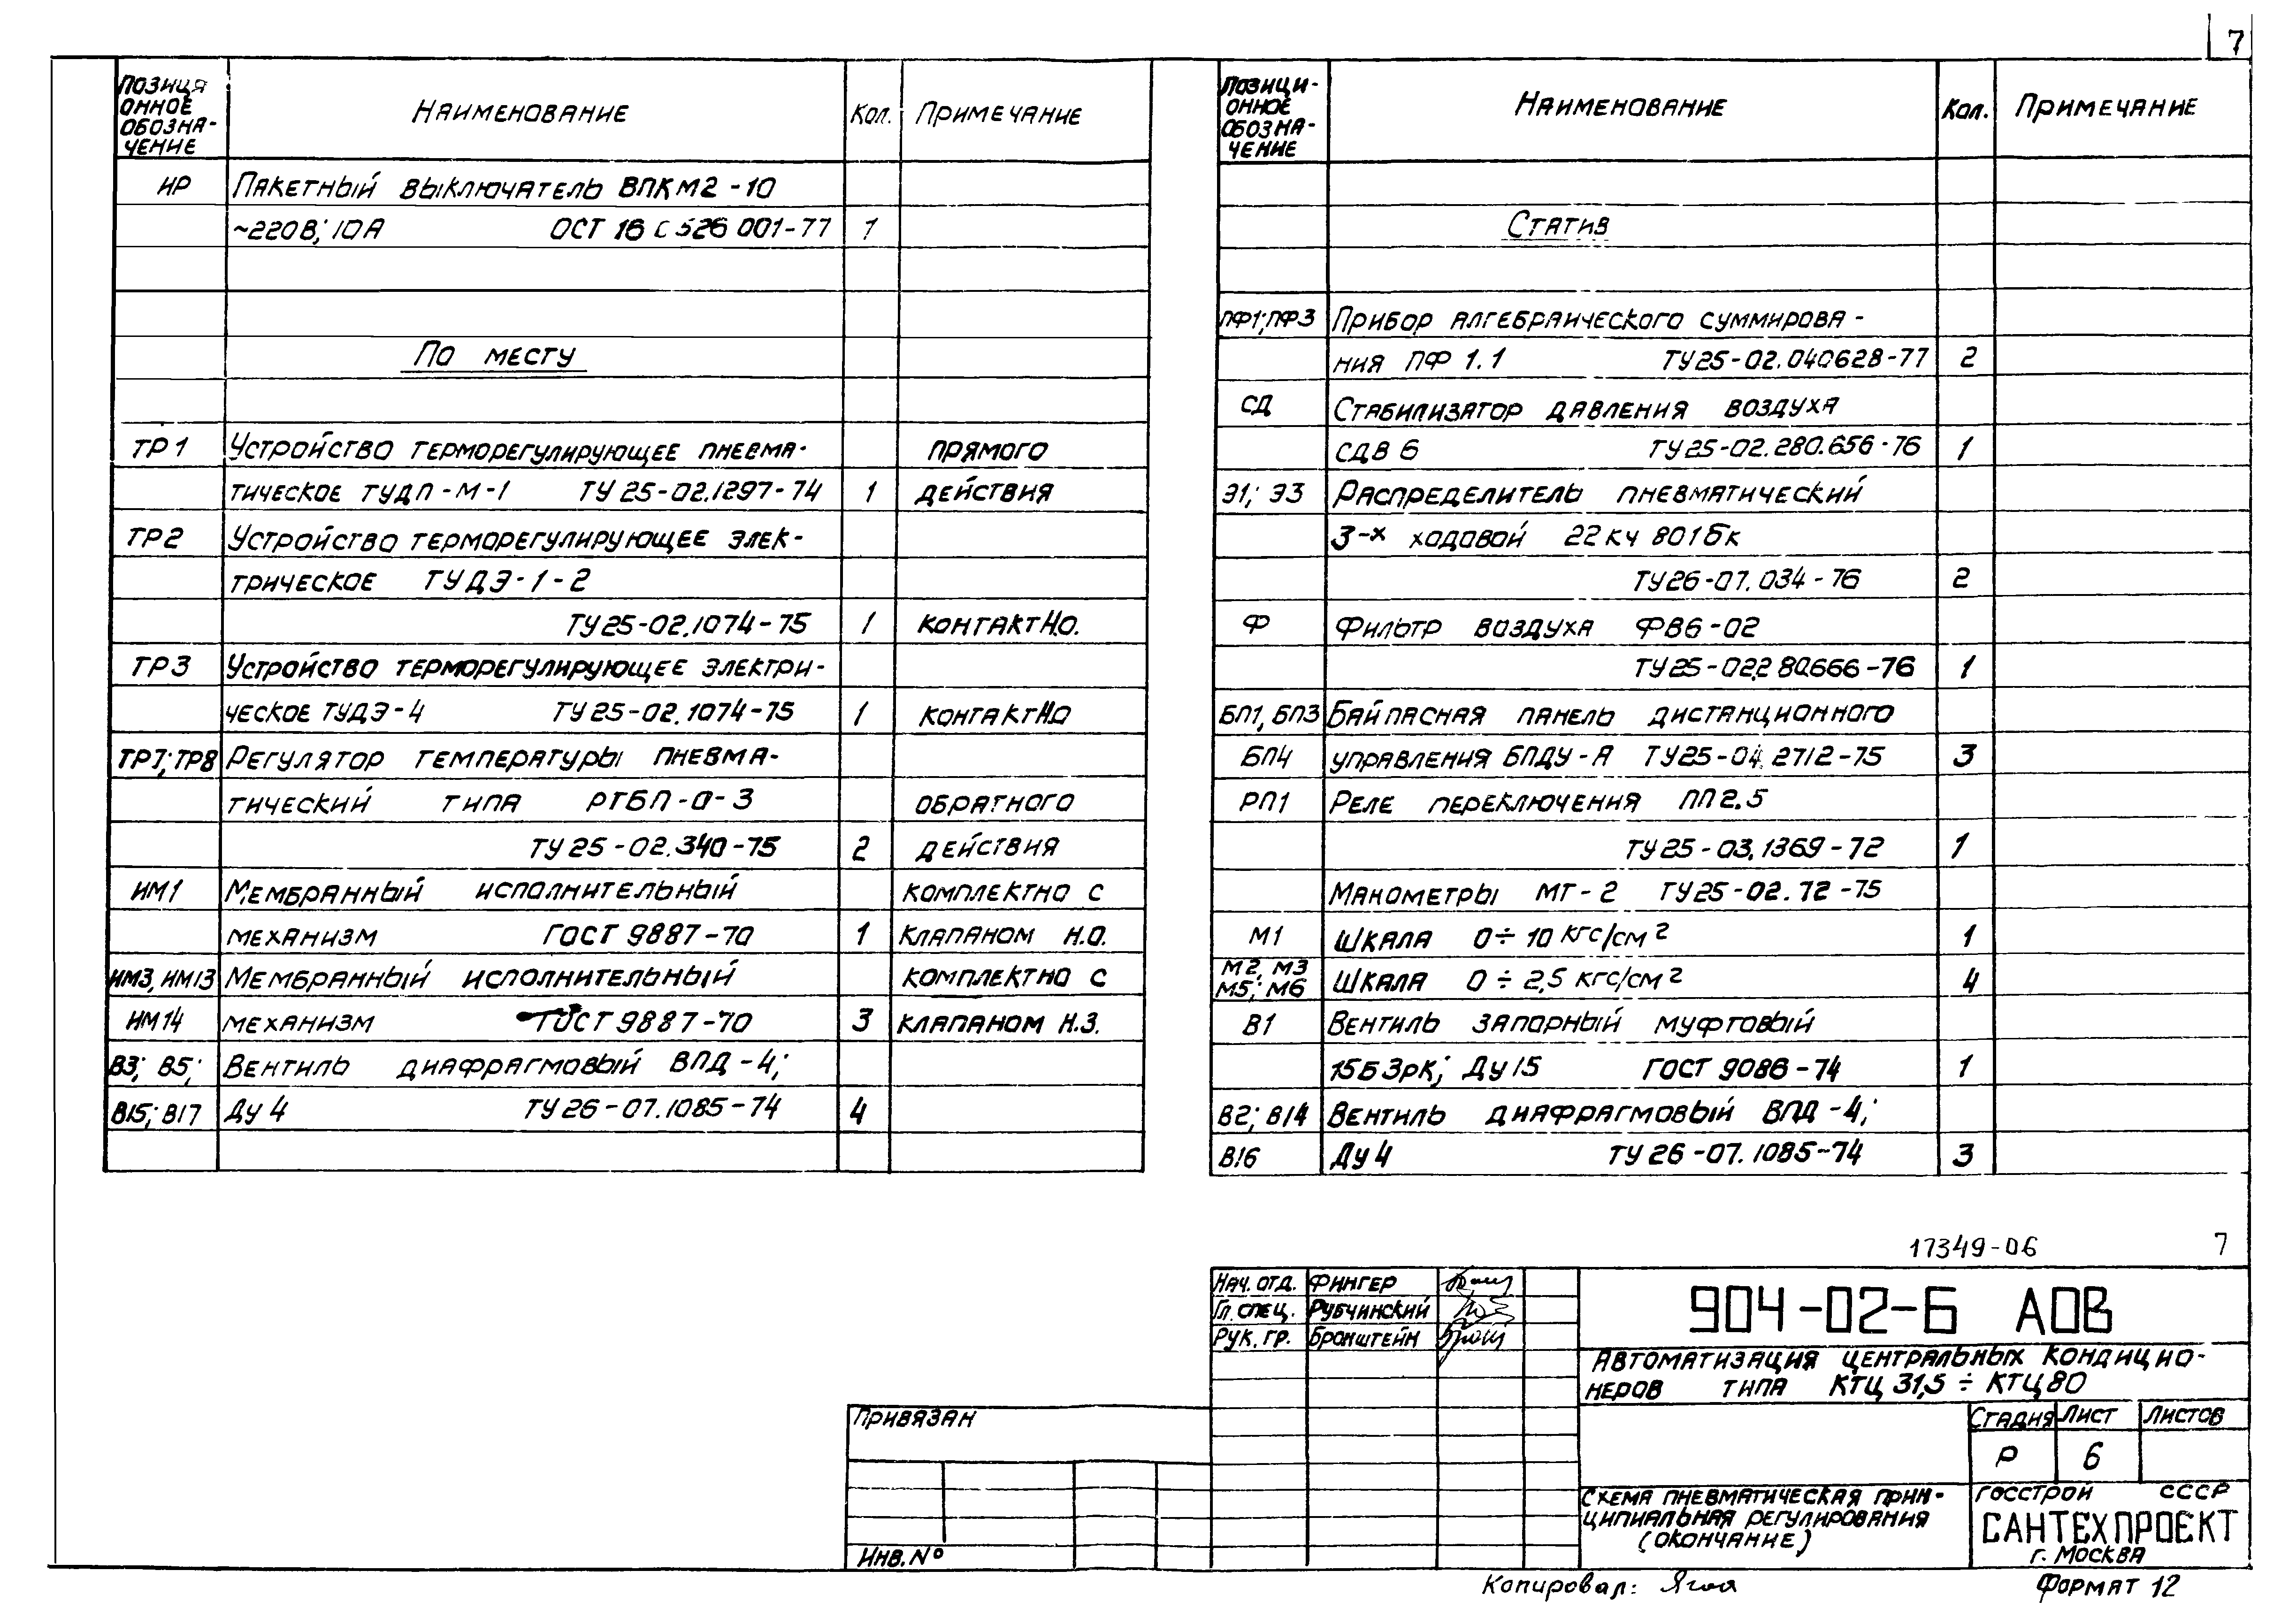 7
Позиця
онное
обозна-
чение
Наименование
Кол.
Примечание
ИР
Пакетный выключатель ВПКМ2-10
~220В; 10А ОСТ 16 0 526 001-77 1
По месту
ТР1 Устройство терморегулирующее пневма- прямого
тическое ТУДП-М-1 ТУ 25-02.1297-74 1 действия
ТР2 Устройство терморегулирующее элек-
трическое ТУДЭ-1-2
ТУ25-02.1074-75 1 контакт Н.О.
ТР3 Устройство терморегулирующее электри-
ческое ТУДЭ-4 ТУ25-02.1074-75 1 контакт НО
ТР7; ТР8 Регулятор температуры пневма-
тический типа РТБП-О-3 обратного
ТУ25-02.340-75 2 действия
ИМ1 Мембранный исполнительный комплектно с
механизм ГОСТ 9887-70 1 клапаном Н.О.
ИМ3, ИМ13 Мембранный исполнительный комплектно с
ИМ14 механизм ГОСТ 9887-70 3 клапаном Н.З.
В3; В5; Вентиль диафрагмовый ВПД-4;
В15; В17 Ду 4 ТУ26-07.1085-74 4
Позици-
онное
обозна-
чение
Наименование
Кол.
Примечание
Статив
ПФ1; ПФ3 Прибор алгебраического суммирова-
ния ПФ 1.1 ТУ25-02.040628-77 2
СД Стабилизатор давления воздуха
СДВ 6 ТУ25-02.280.656-76 1
Э1; Э3 Распределитель пневматический
3-х ходовой 22кч 801бк
ТУ26-07.034-76 2
Ф Фильтр воздуха ФВ6-02
ТУ25-022 80.666-76 1
БП1, БП3 Байпасная панель дистанционного
БП4 управления БПДУ-А ТУ25-04.2712-75 3
РП1 Реле переключения ПП2.5
ТУ25-03.1369-72 1
Манометры МТ-2 ТУ25-02.72-75
М1 Шкала 0÷10 кгс/см² 1
М2, М3
М5; М6 Шкала 0÷2,5 кгс/см² 4
В1 Вентиль запорный муфтовый
15Б3рк; Ду15 ГОСТ 9086-74 1
В2; В14 Вентиль диафрагмовый ВПД-4;
В16 Ду 4 ТУ26-07.1085-74 3
17349-06 7
Нач. отд. Фингер
Гл. спец. Рубчинский
Рук. гр. Бронштейн
904-02-6 АОВ
Автоматизация центральных кондицио-
неров типа КТЦ 31,5 ÷ КТЦ80
Привязан
Инв. №
Стадия Лист Листов
Р 6
Схема пневматическая прин-
ципиальная регулирования
(окончание)
Госстрой СССР
САНТЕХПРОЕКТ
г. Москва
Копировал:
Формат 12